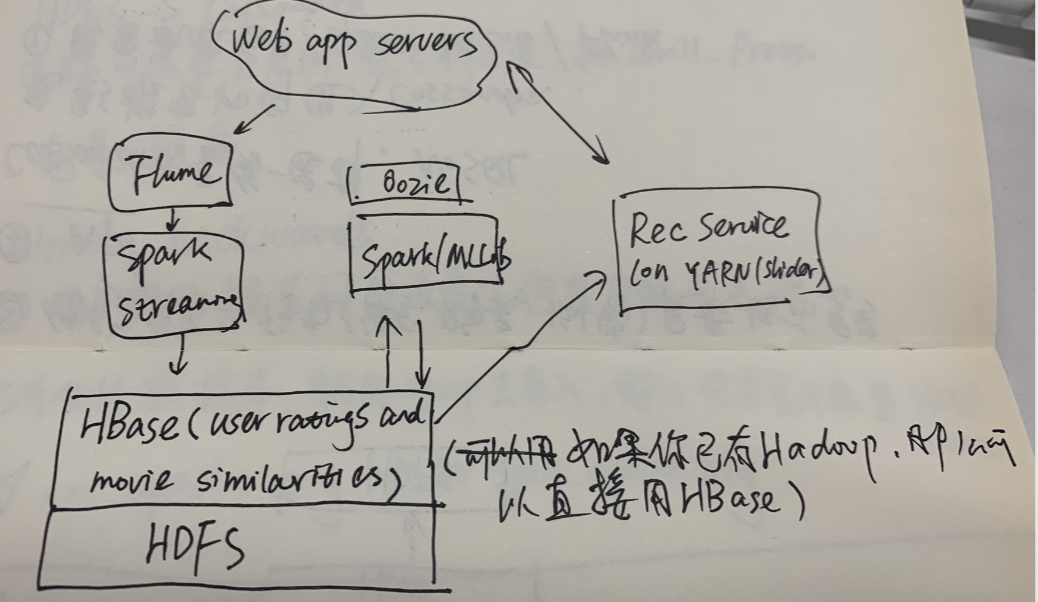 Web app servers
Flume
Oozie
Spark
streaming
Spark/MLLib
Rec Service
(on YARN/Slider)
HBase (user ratings and
movie similarities)
(可以用 如果你已有Hadoop,
以直接用HBase)
HDFS